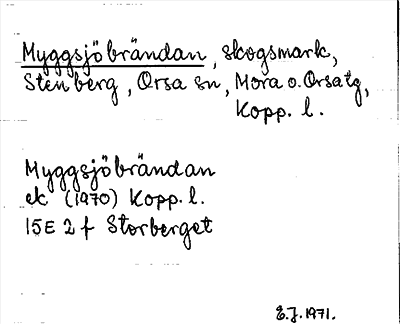 Myggsjöbrändan, skogsmark,
Stenberg, Orsa sn, Mora o. Orsatg,
Kopp. l.
Myggsjöbrändan
ek (1970) Kopp. l.
15E 2f Storberget
E.J. 1971.